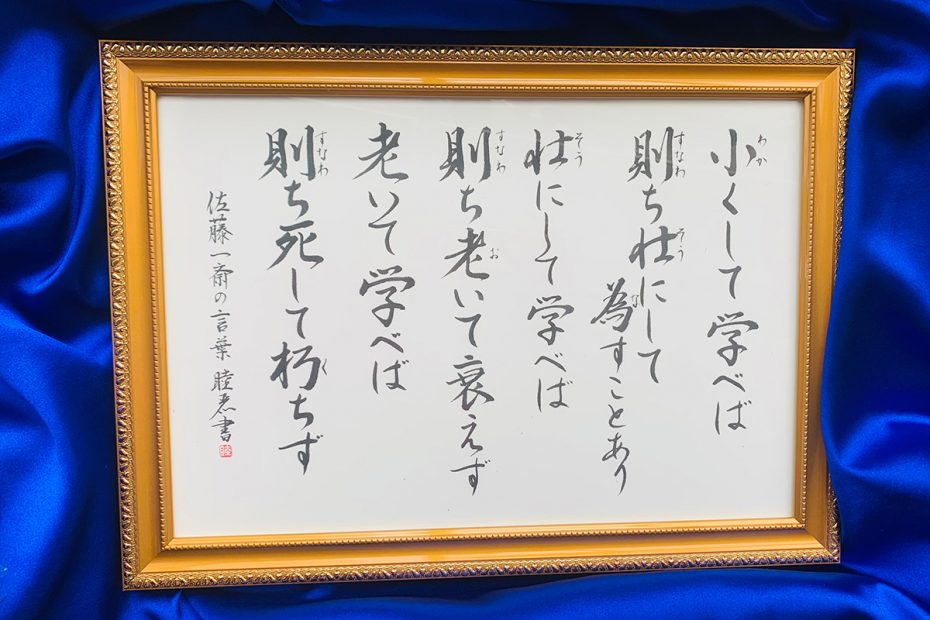 小くして学べば
わか
則ち壮にして
すなわ そう
為すことあり
な
壮にして学べば
そう
則ち老いて衰えず
すなわ お
老いて学べば
則ち死して朽ちず
すなわ く
佐藤一斎の言葉 睦恵書
睦